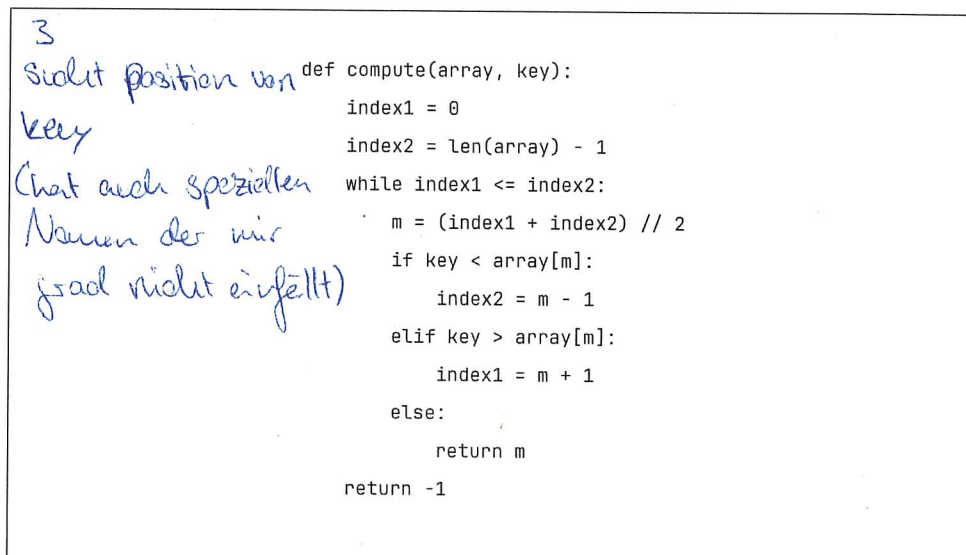 3
sucht position von
key
(hat auch speziellen
Namen der mir
grad nicht einfällt)
def compute(array, key):
index1 = 0
index2 = len(array) - 1
while index1 <= index2:
m = (index1 + index2) // 2
if key < array[m]:
index2 = m - 1
elif key > array[m]:
index1 = m + 1
else:
return m
return -1